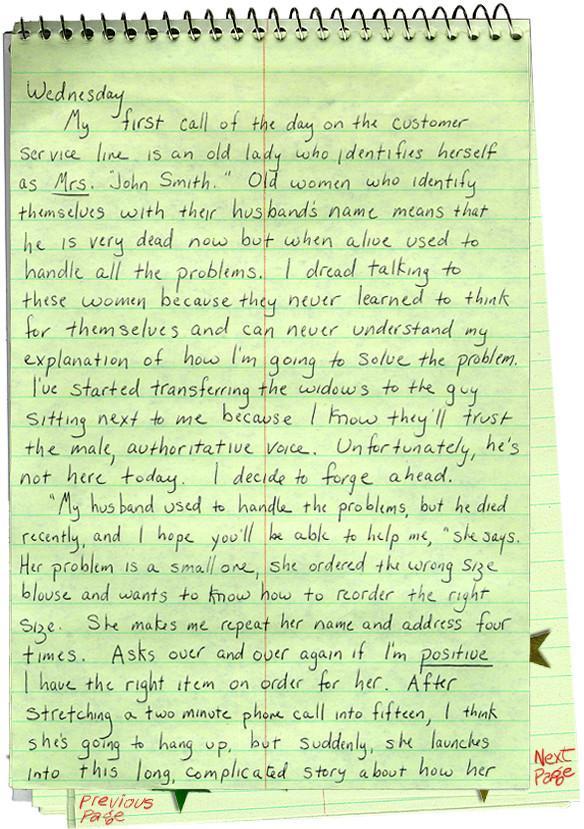 Wednesday
My first call of the day on the customer
service line is an old lady who identifies herself
as Mrs. "John Smith." Old women who identify
themselves with their husband's name means that
he is very dead now but when alive used to
handle all the problems. I dread talking to
these women because they never learned to think
for themselves and can never understand my
explanation of how I'm going to solve the problem.
I've started transferring the widows to the guy
sitting next to me because I know they'll trust
the male, authoritative voice. Unfortunately, he's
not here today. I decide to forge ahead.
"My husband used to handle the problems, but he died
recently, and I hope you'll be able to help me," she says.
Her problem is a small one, she ordered the wrong size
blouse and wants to know how to reorder the right
size. She makes me repeat her name and address four
times. Asks over and over again if I'm positive
I have the right item on order for her. After
stretching a two minute phone call into fifteen, I think
she's going to hang up, but suddenly, she launches
into this long, complicated story about how her
Next
Page
Previous
Page